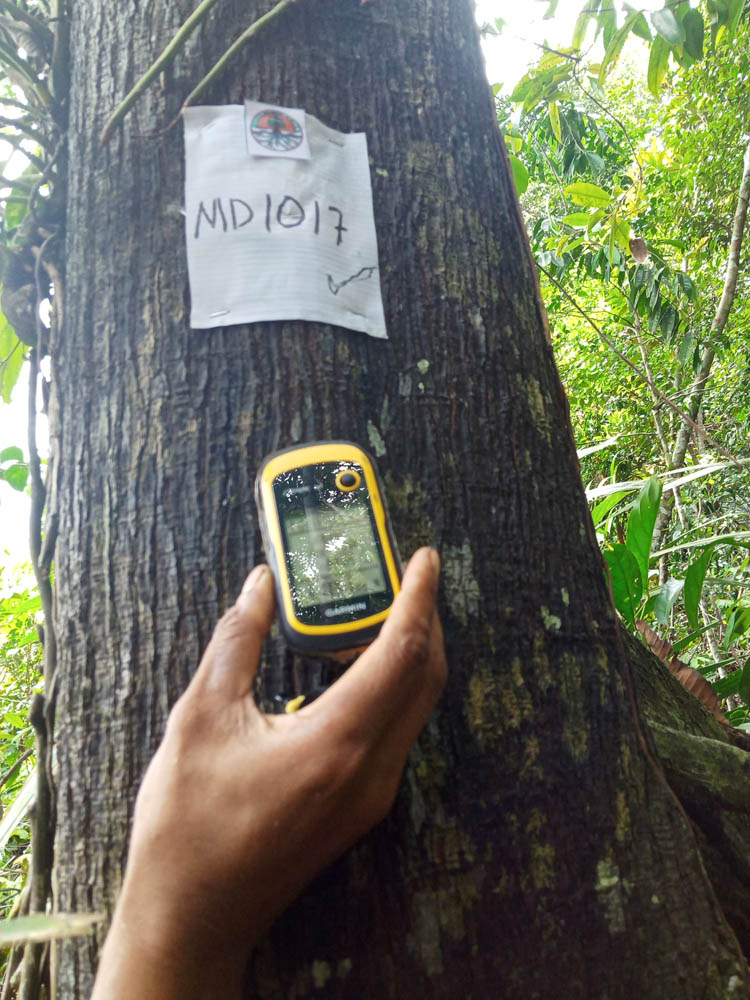 MD1017
GARMIN